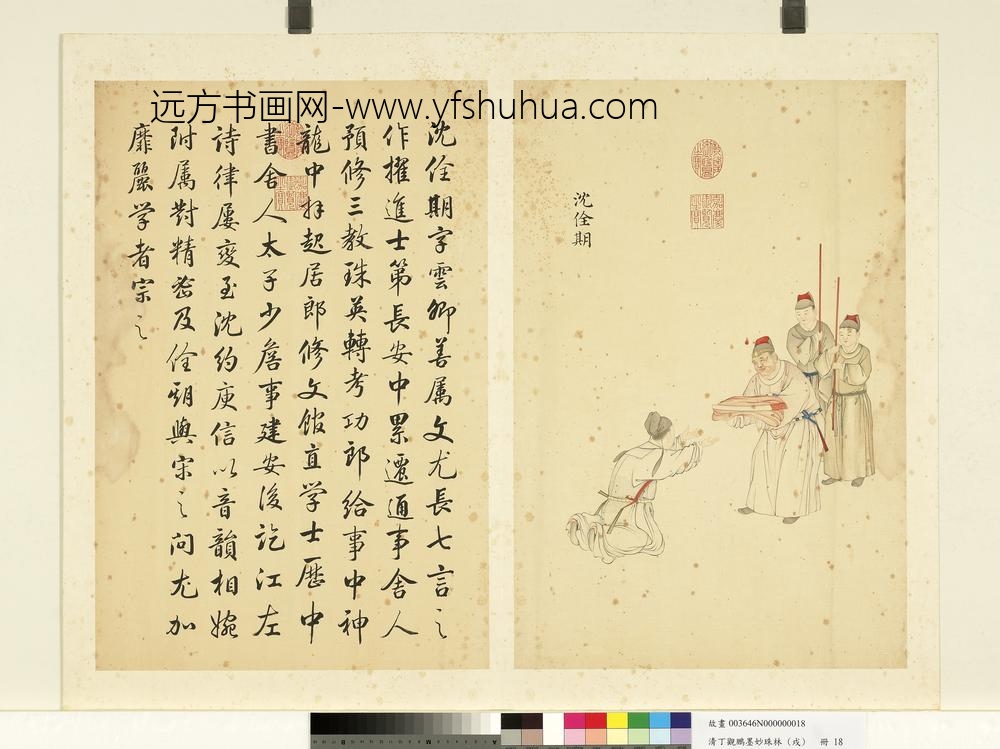 远方书画网-www.yfshuhua.com
沈佺期
沈佺期字雲卿善属文尤長七言之
作擢進士第長安中累遷通事舍人
預修三教珠英轉考功郎給事中神
龍中拜起居郎修文館直学士歷中
書舍人太子少詹事建安後訖江左
诗律屢變至沈約庾信以音韻相婉
附属對精密及佺期與宋之问尤加
靡麗学者宗之
嘉慶御覽之寶
故畫 003646N000000018
清丁觀鵬墨妙珠林（戌） 冊 18